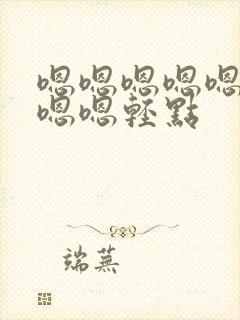 嗯嗯嗯嗯嗯
嗯嗯輕點
端蕪